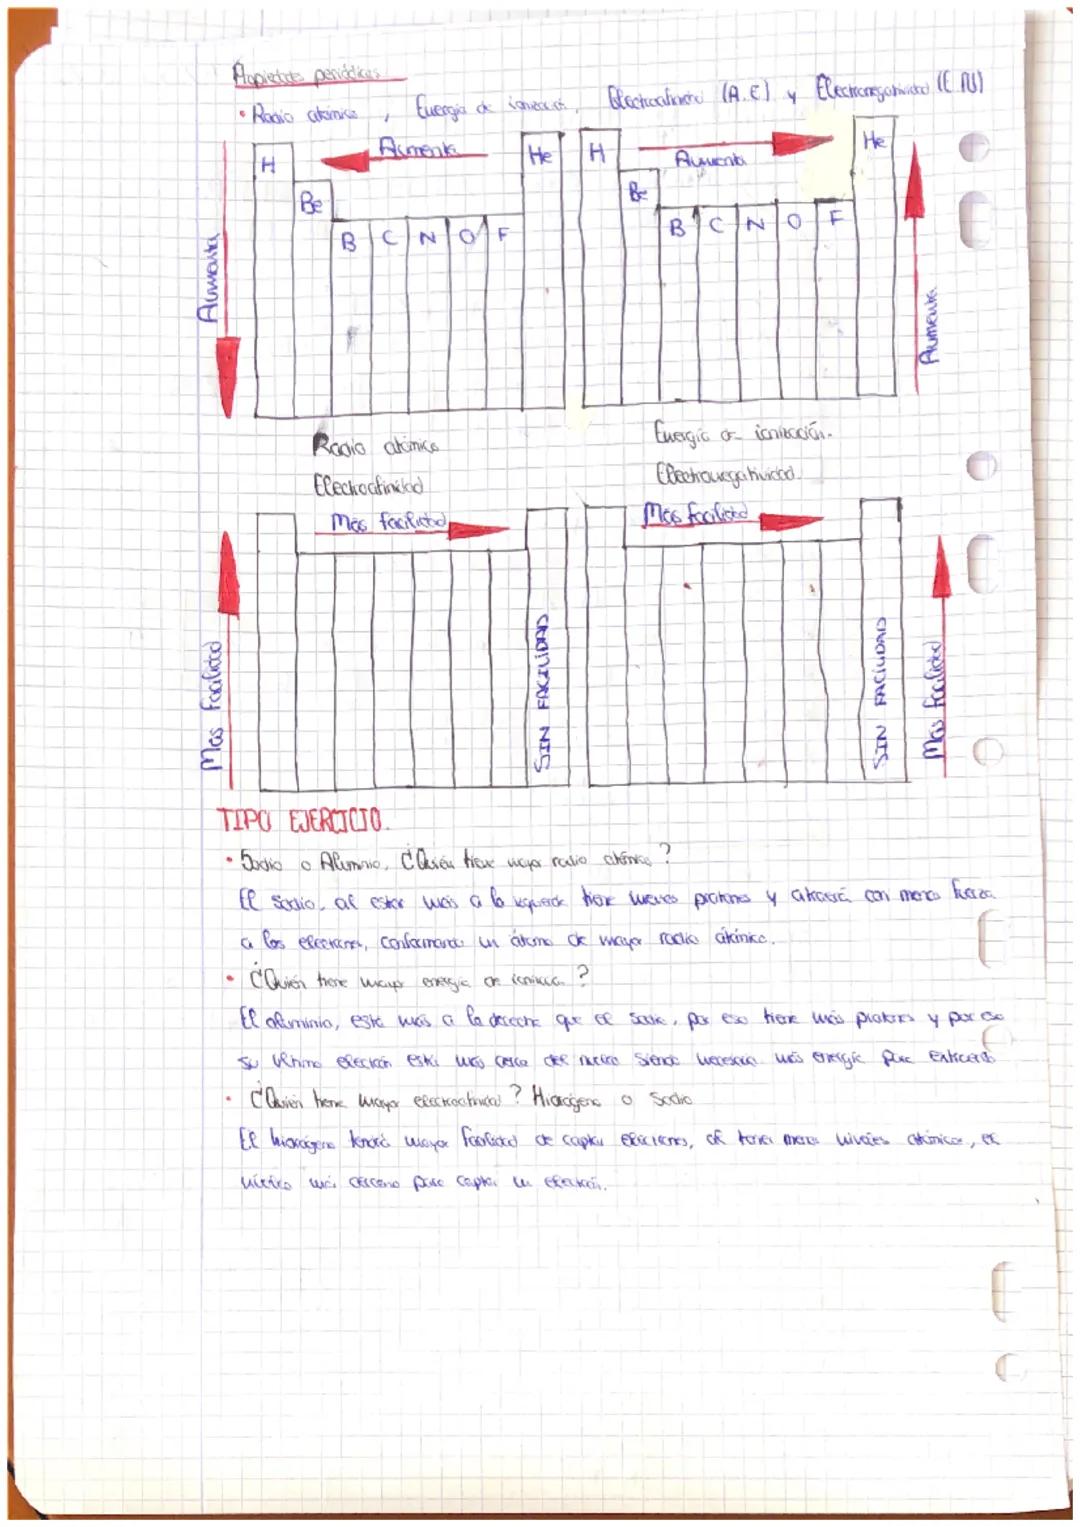 Propiedades periódicas
• Radio atómico, Energía de ionización, Electroafinidad (A.E) y Electronegatividad (E.N)
Aumenta
Aumenta
H He H He
Be Be
B C N O F B C N O F
Aumenta
Aumenta
Radio atómico Energía de ionización.
Electroafinidad Electronegatividad.
Más facilidad Más facilidad
Más facilidad
SIN FACILIDAD
SIN FACILIDAD
Más facilidad
TIPO EJERCICIO.
• Sodio o Aluminio. ¿Quién tiene mayor radio atómico?
El sodio, al estar más a la izquierda tiene menos protones y atraerá con menos fuerza
a los electrones, conformando un átomo de mayor radio atómico.
• ¿Quién tiene mayor energía de ionizac. ?
El aluminio, está más a la derecha que el sodio, por eso tiene más protones y por eso
su último electrón está más cerca del núcleo siendo necesaria más energía para extraerlo
• ¿Quién tiene mayor electroafinidad? Hidrógeno o Sodio
El hidrógeno tendrá mayor facilidad de captar electrones, al tener menos niveles atómicos, el
núcleo más cercano para captar un electrón.